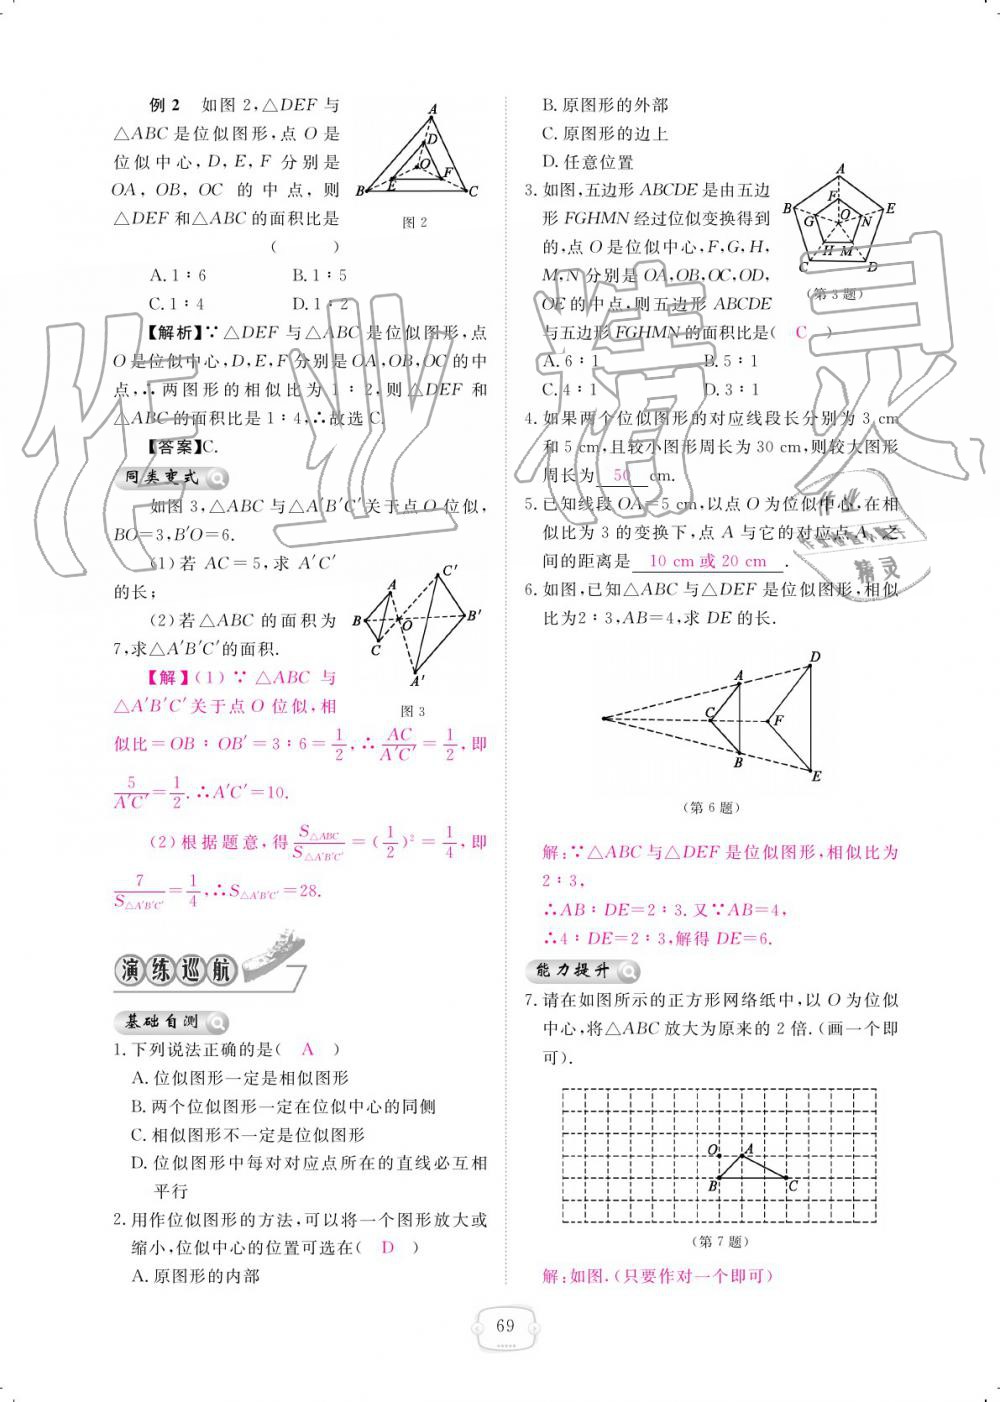 例 2　如图 2,△DEF 与
△ABC 是位似图形,点 O 是
位似中心,D,E,F 分别是
OA,OB,OC 的中点,则
△DEF 和△ABC 的面积比是
(　　)
A
D
O
B
E
F
C
图 2
A. 1∶6　　B. 1∶5
C. 1∶4　　D. 1∶2
【解析】∵△DEF 与△ABC 是位似图形,点
O 是位似中心,D,E,F 分别是 OA,OB,OC 的中
点,∴两图形的相似比为 1∶2,则△DEF 和
△ABC 的面积比是 1∶4,∴故选 C.
【答案】C.
同类变式
如图 3,△ABC 与△A′B′C′关于点 O 位似,
BO=3,B′O=6.
(1)若 AC=5,求 A′C′
的长;
(2)若△ABC 的面积为
7,求△A′B′C′的面积.
A
C′
B
O
B′
C
A′
图 3
【解】(1)∵△ABC 与
△A′B′C′关于点 O 位似,相
似比=OB∶OB′=3∶6=1/2,∴AC/A′C′=1/2,即
5/A′C′=1/2.∴A′C′=10.
(2)根据题意,得S△ABC/S△A′B′C′=(1/2)²=1/4,即
7/S△A′B′C′=1/4,∴S△A′B′C′=28.
演练巡航
基础自测
1. 下列说法正确的是(　A　)
A. 位似图形一定是相似图形
B. 两个位似图形一定在位似中心的同侧
C. 相似图形不一定是位似图形
D. 位似图形中每对对应点所在的直线必互相
平行
2. 用作位似图形的方法,可以将一个图形放大或
缩小,位似中心的位置可选在(　D　)
A. 原图形的内部
B. 原图形的外部
C. 原图形的边上
D. 任意位置
3. 如图,五边形 ABCDE 是由五边
形 FGHMN 经过位似变换得到
的,点 O 是位似中心,F,G,H,
M,N 分别是 OA,OB,OC,OD,
OE 的中点,则五边形 ABCDE
与五边形 FGHMN 的面积比是(　C　)
A
B
F
E
G
O
N
H
M
C
D
(第 3 题)
A. 6∶1　　B. 5∶1
C. 4∶1　　D. 3∶1
4. 如果两个位似图形的对应线段长分别为 3 cm
和 5 cm,且较小图形周长为 30 cm,则较大图形
周长为 50 cm.
5. 已知线段 OA=5 cm,以点 O 为位似中心,在相
似比为 3 的变换下,点 A 与它的对应点 A′之
间的距离是 10 cm 或 20 cm .
6. 如图,已知△ABC 与△DEF 是位似图形,相似
比为2∶3,AB=4,求 DE 的长.
D
A
C
F
B
E
(第 6 题)
解:∵△ABC 与△DEF 是位似图形,相似比为
2∶3,
∴AB∶DE=2∶3.又∵AB=4,
∴4∶DE=2∶3,解得 DE=6.
能力提升
7. 请在如图所示的正方形网络纸中,以 O 为位似
中心,将△ABC 放大为原来的 2 倍.(画一个即
可).
O
A
B
C
(第 7 题)
解:如图.(只要作对一个即可)
69
作业精灵
作业
作业检查小助手
精灵